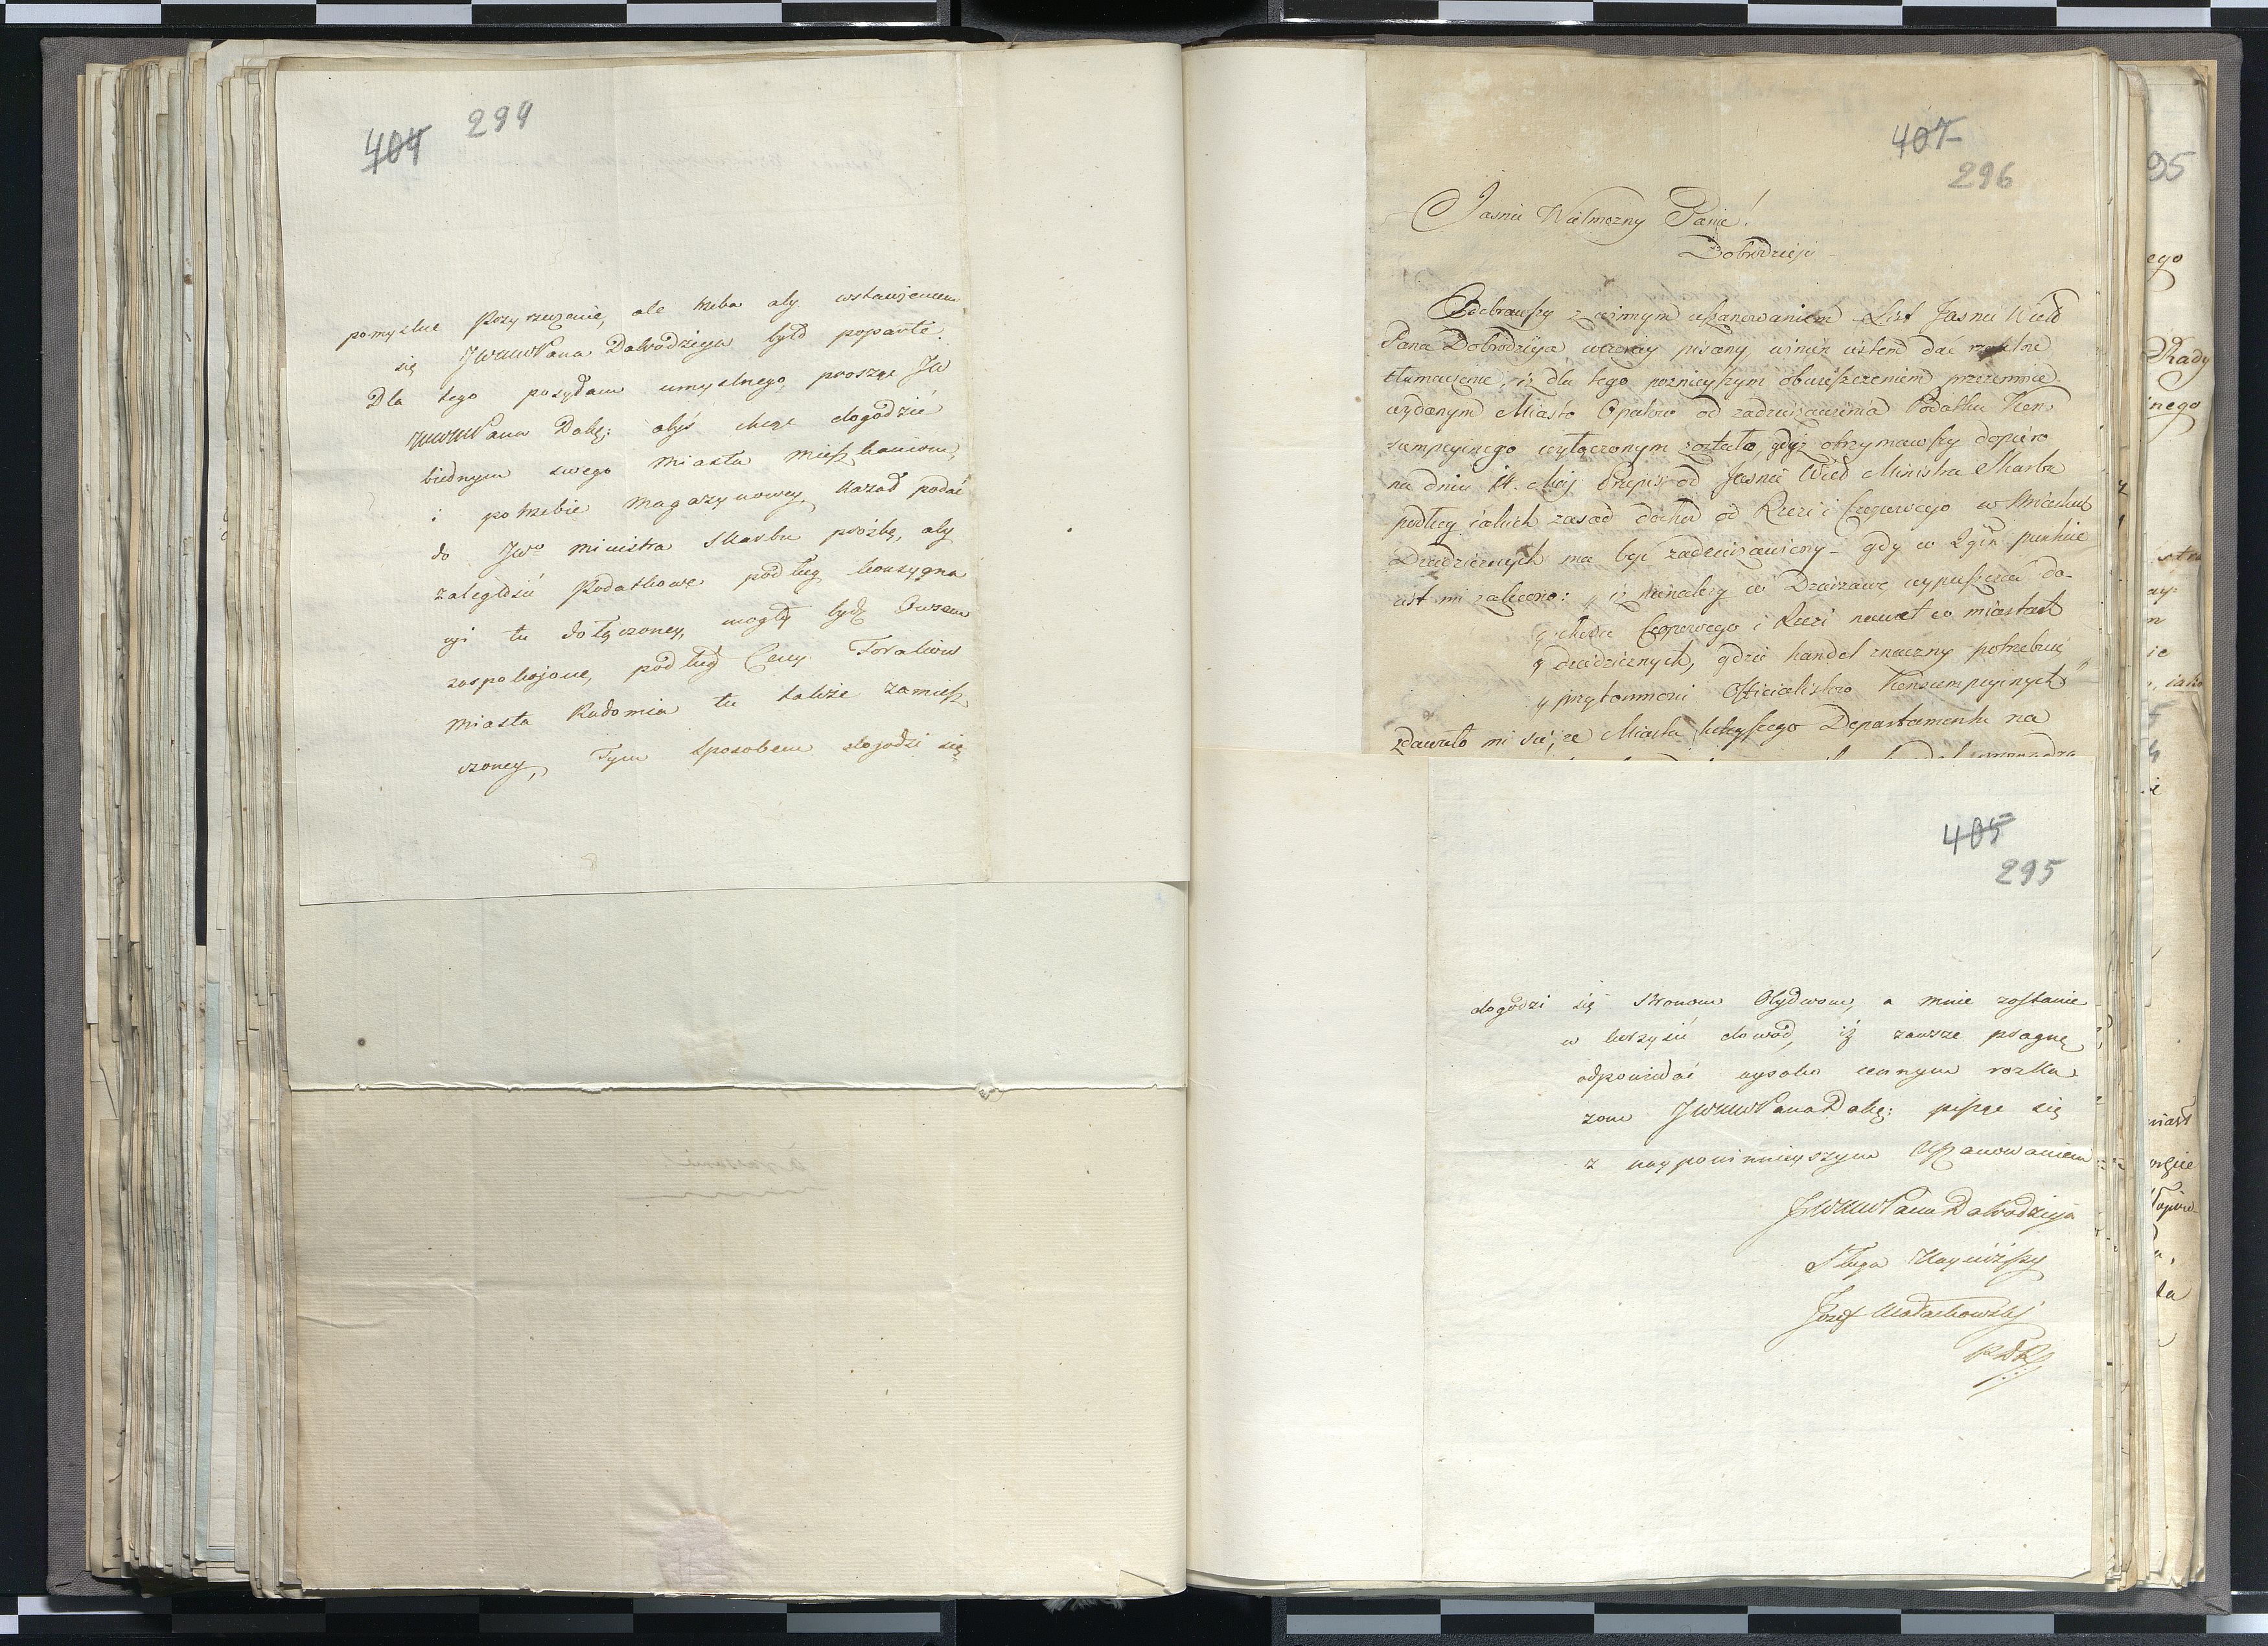 404 294
pomyslne Przyrzeczenie, ale trzeba aby wstawieniem
się JWWWPana Dobrodzieja było poparte.
Dla tego posyłam umyslnego, prosząc JW
JWWWPana Dobę: abyś chcąc dogodzić
biednym swego Miasta Mieszkańcom,
i potrzebie Magazynowey, Kazał podać
do JWo Ministra Skarbu prośbę, aby
zaległość Podatkowe podług konsygna
cyi tu dołączoney, mogły bydź Owsem
zaspokojone, podług Ceny Foraliow
Miasta Radomia tu także zamiesz
czoney, Tym Sposobem dogodzi się
407
296
Jasnie Wielmożny Panie!
Dobrodzieju
Odebrawszy z winnym uszanowaniem List Jasnie Wiel
Pana Dobrodzieja wczoray pisany, winien iestem dać rzetelne
tłumaczenie, iż dla tego poznieyszym obwieszczeniem przezemnie
wydanym Miasto Opatow od zadzierżawienia Podatku Kon
sumpcyinego wyłączonym zostało, gdyż otrzymawszy dopiero
na dniu 14. Maj Przepis od Jasnie Wiel Ministra Skarbu
podług iakich zasad dochod od Rzezi i Czopowego w Miastach
Dziedzicznych ma być zadzierżawiony - gdy w 2gim punkcie
iest mi zalecono: „iż nienależy w Dzierżawę wypuszczać do-
„chodu Czopowego i Rzezi nawet w miastach
„dziedzicznych, gdzie handel znaczny potrzebuie
„przytomności Officialistow Konsumpcyinych"
zdawało mi się, że Miasta tuteyszego Departamentu na
405
295
dogodzi się stronom Obydwom, a mnie zostanie
w korzyść dowod, iż zawsze pragnę
odpowiedać wysoko cennym rozka
zom JWWWPana Dobę: piszę się
z naypowinnieyszym Uszanowaniem
JWWWPana Dobrodzieja
Sługa Nayniższy
Józef Małachowski
PDR